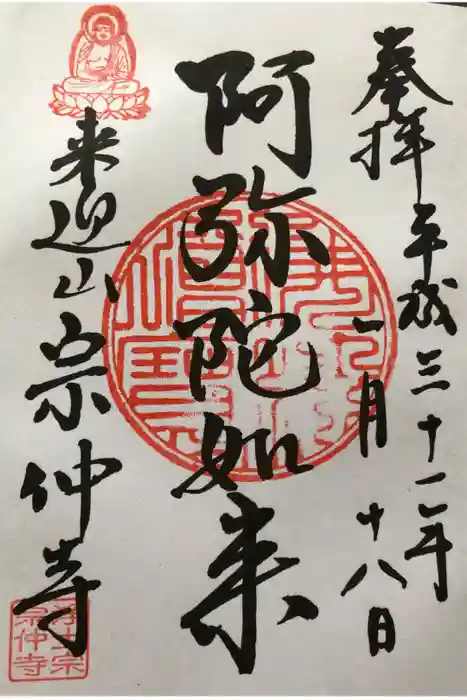 奉拝 平成三十一年
一月十八日
阿弥陀如来
来迎山 宗仲寺
浄土宗
宗仲寺